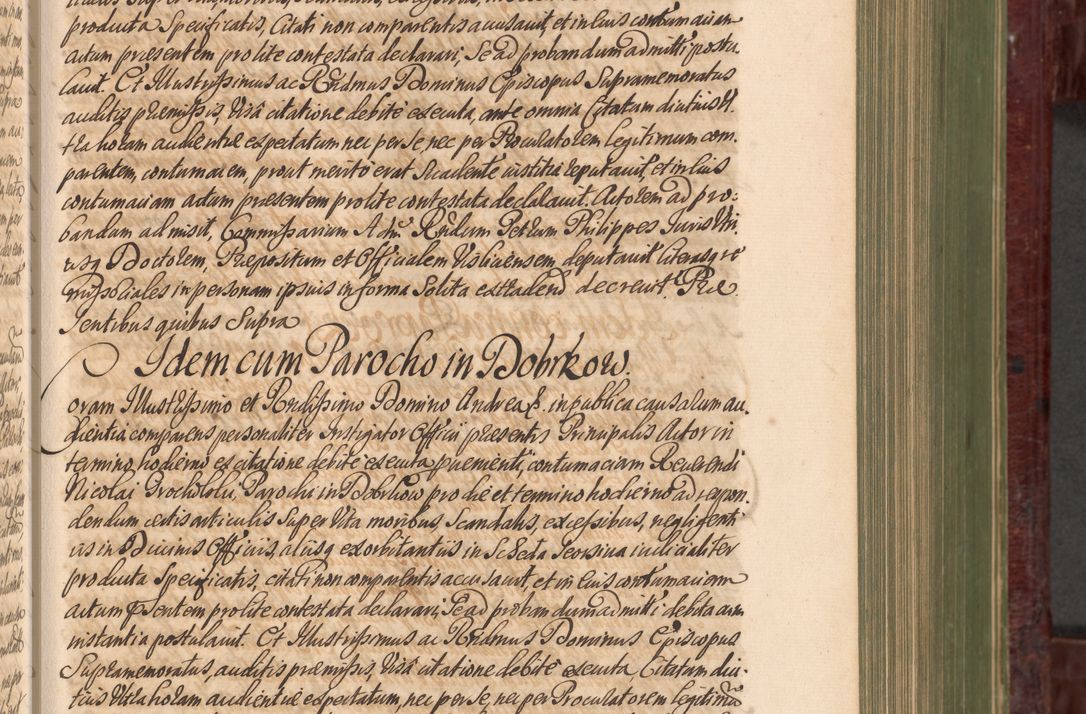 producta Specificatis, Citati non comparentis accusavit, et in eius contumaciam
actum præsentem pro lite contestata declarari, Se ad probandum admitti postu
lavit. Et Illustrissimus ac Rndmus Dominus Episcopus Supramemoratus
auditis præmissis, Visâ citatione debitè executa, ante omnia Citatum diutius Vl
tra horam audientiæ expectatum nec per se nec per Procuratorem legitimum com,
parentem, contumacem, prout meritò erat Suadente iustitia reputavit, et in eius
contumaciam actum præsentem pro lite contestata declaravit. Actorem ad pro:
bandum admisit, Commissarium Adm. Rndum Petrum Philippes Juris Vtri,
usq Doctorem, Præpositum et Officialem Visliciensem deputavit literasq re
missoriales in personam ipsius in forma Solita extradend decrevit. Præ
sentibus quibus Supra
Idem cum Parocho in Dobrkow.
Coram Illustrissimo et Rndissimo Domino Andrea &. in publica causarum au,
dientia comparens personaliter Instigator Officii præsentis Principalis Actor in
termino hodierno ex citatione debitè executa provenienti, contumaciam Reverendi
Nicolai Parochi in Dobrkow pro die et termino hodierno ad respon
dendum certis articulis Super Vita moribus, Scandalis, excessibus, negligenti
iis in Divinis Officiis, aliisq exorbitantiis in Scheda Seorsiva iudicialiter
producta Specificatis, citati non comparentis accusavit, et in eius contumaciam
actum psentem pro lite contestata declarari, Se ad probandum admitti debita cum
instantia postulavit. Et Illustrissimus ac Rndmus Dominus Episcopus
Supramemoratus, auditis præmissis, Visâ citatione debitè executa Citatum diu,
tius Vltra horam audientiæ expectatum, nec per se, nec per Procuratorem legitimũ